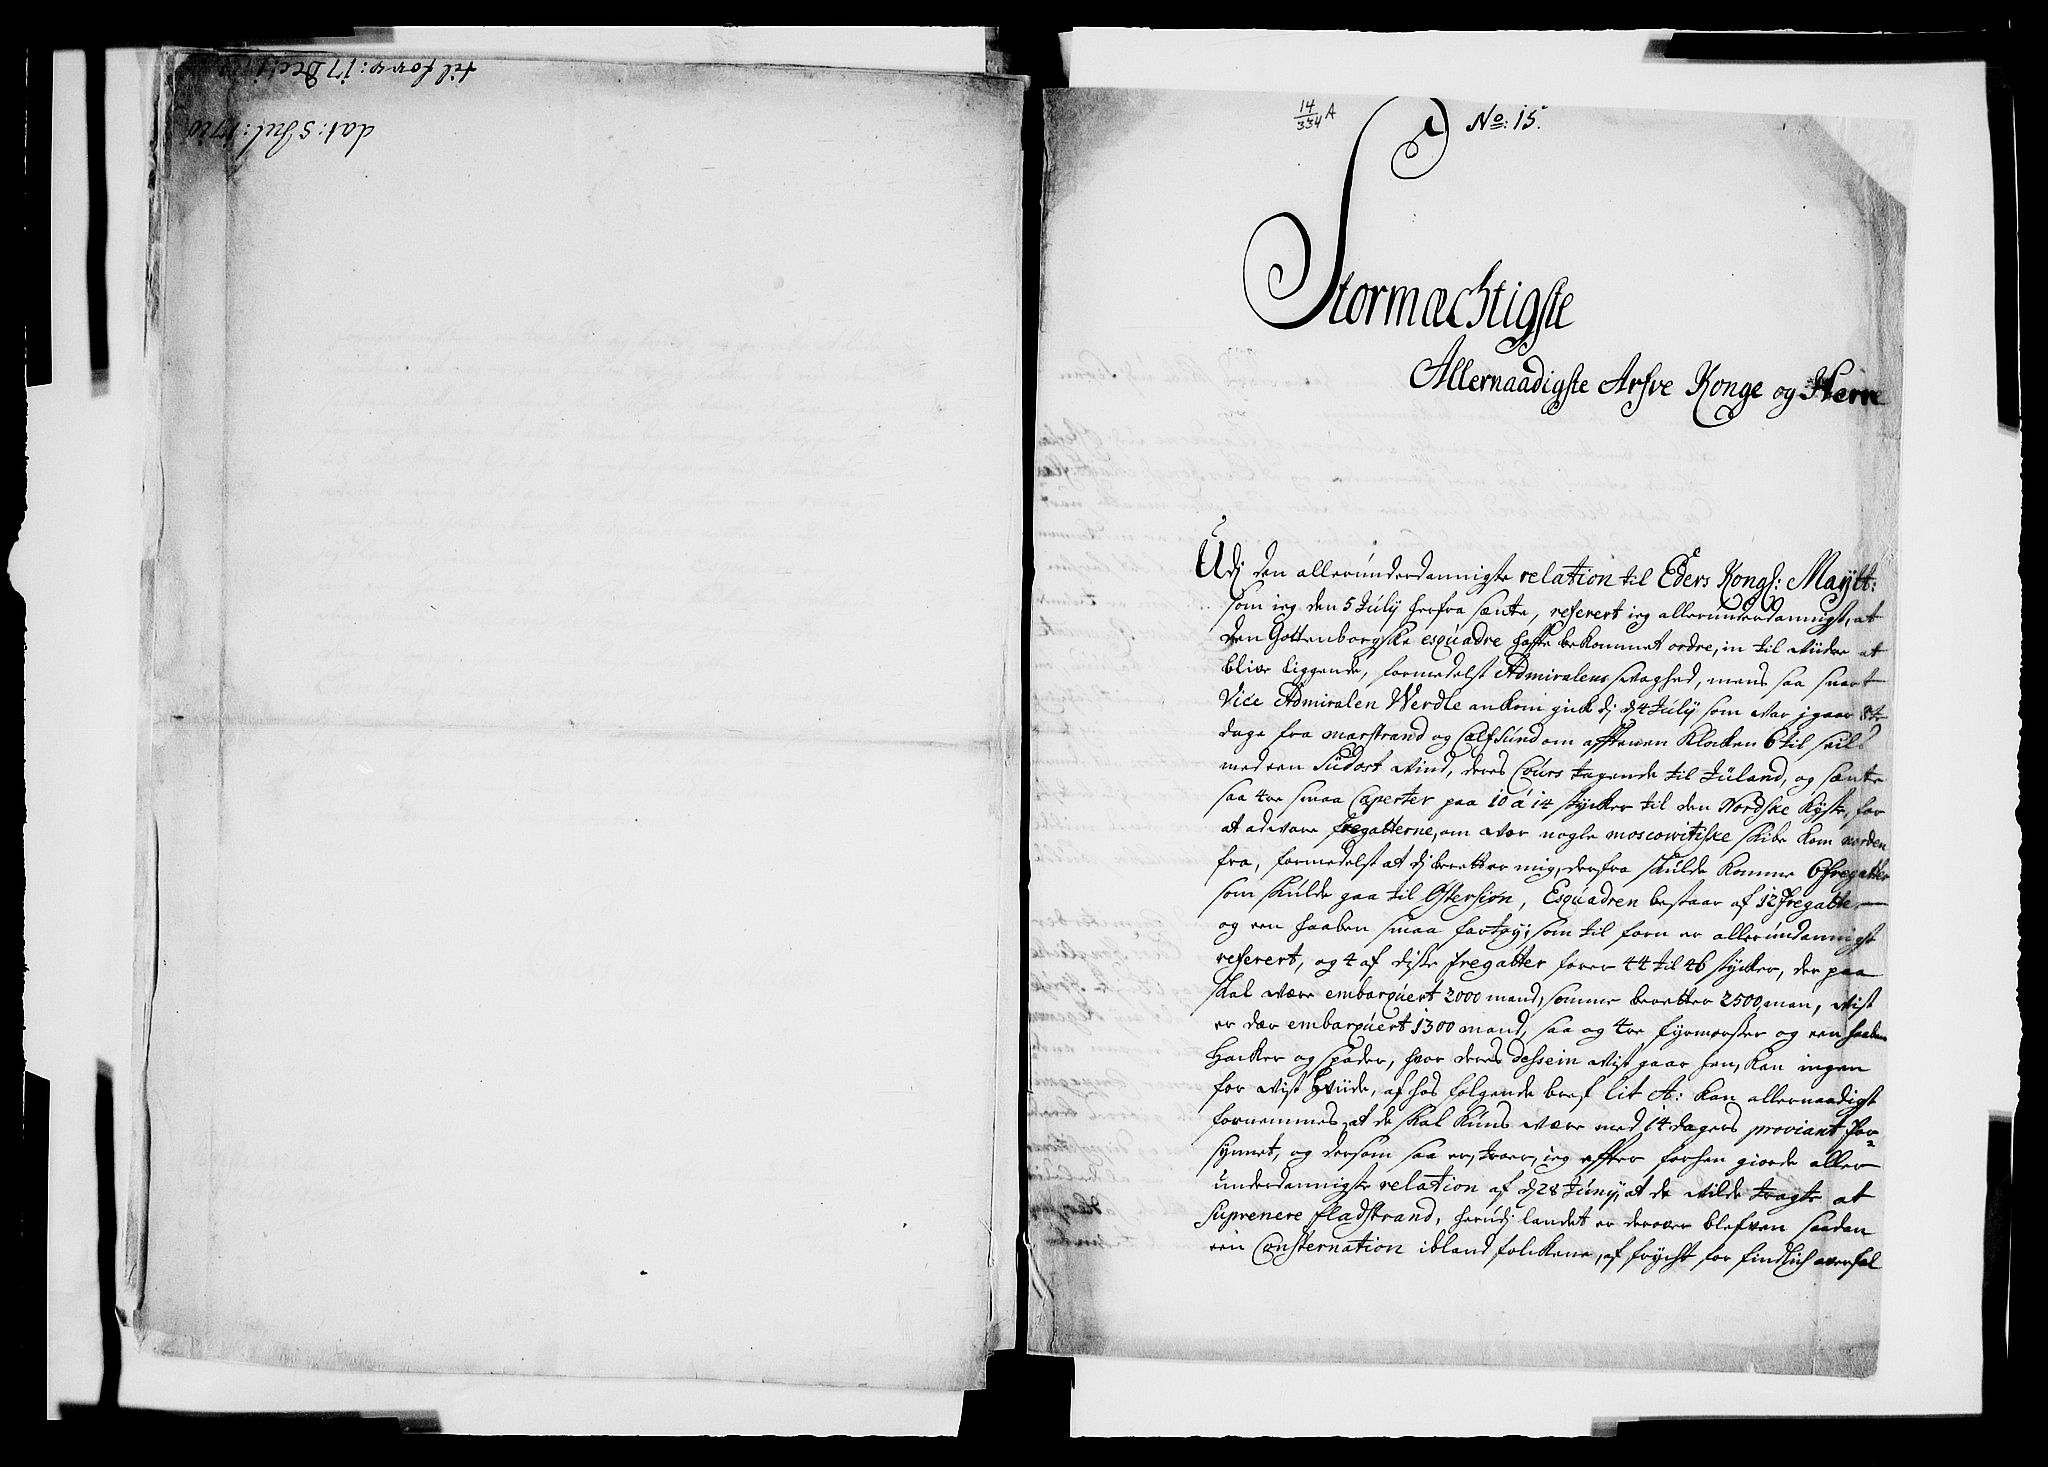 til forn: 17 Dec: 1710
dat: 5 Jul: 1710
14/334 A
No: 15.
Stormæchtigste
Allernaadigste Arfve Konge og Herre
Udj den allerúnderdannigste relation til Eders Kongl: Maÿtt:
som ieg den 5 Júlÿ herfra sænte, referert ieg allerúnderdannigst, at
den Gottenborgske esqúadre hafte bekommet ordre, in til viidre at
blive liggende, formedelst Admiralens svaghed, mens saa snart
Vice Admiralen Werdle ankom gick dj d 4 Júlÿ som var j gaar 8te
dage fra marstrand og Calfsúnd om afftenen Klocken 6 til seils
med een Súdost vind, deres Coúrs tagende til Júland, og sænte
saa 4re smaa Caperter paa 10 á 14 stÿcker til den Nordske Kÿst, for
at advare fregatterne, om der nogle moscowitiske skibe kom norden
fra, formedelst at dj beretter mig, derfra skúlde komme 6 fregatter
som skúlde gaa til Østersiøn, Esqúadren bestaar af 12 fregatter
og een haaben smaa fartøÿ, som til forn er allerúndannigst
referert, og 4 af disse fregatter fører 44 til 46 stÿcker, der paa
skal være embarqúert 2000 mand, somme beretter 2500 man, vist
er dær embarqúert 1300 mand, saa og 4re fÿrmørster og een haaben
Hacker og spader, hvor deres dessein vist gaar hen, kan ingen
for vist viide, af hos følgende bref lit A: kan allernaadigst
fornemmes, at de skal kúns være med 14 dagers proviant for-
sÿnnet, og dersom saa er, troer ieg effter forhen giorde aller
underdannigste relation af d 28 Júnÿ, at de vilde tragte at
suprenere fladstrand, herúdj landet er derover blefven saadan
een Consternation ibland folckene, af frÿcht for findlich overfal